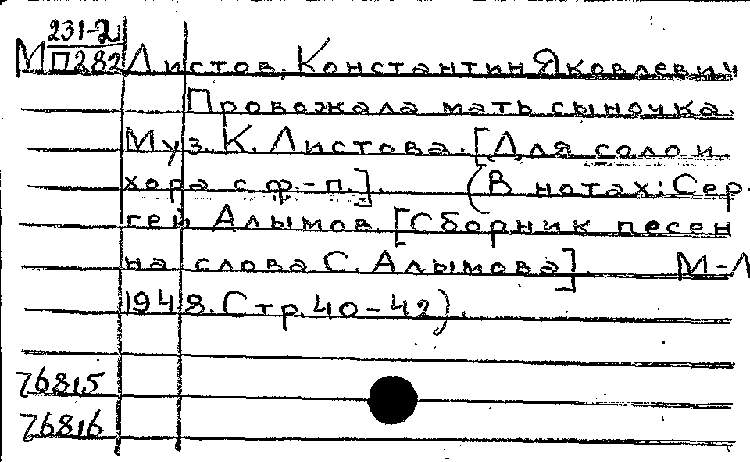 231-2
М П282 Листов, Константин Яковлевич
Провожала мать сыночка.
Муз. К. Листова. [Для соло и
хора с ф.-п.]. (В нотах: Сер-
гей Алымов. [Сборник песен
на слова С. Алымова]. М-Л
1948. Стр. 40-42).
76815
76816